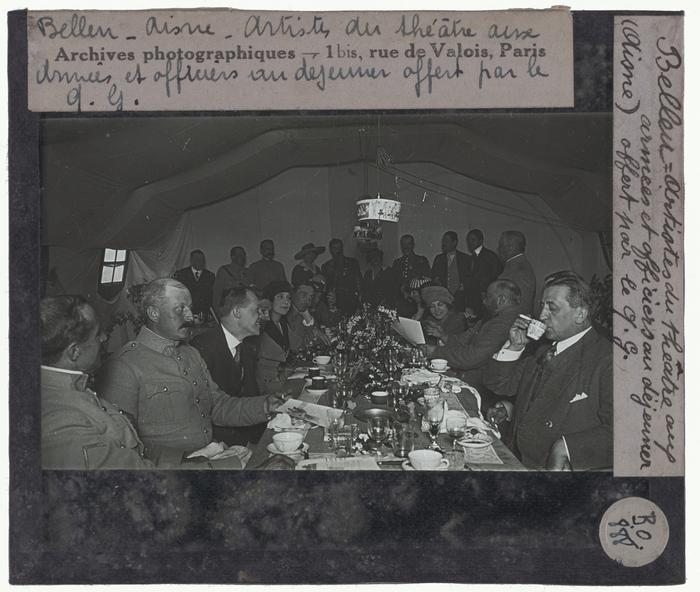 Belleu - Aisne - Artistes du théâtre aux
Archives photographiques — 1 bis, rue de Valois, Paris
armées et officiers au déjeuner offert par le
G. G.
Belleu - Artistes du théâtre aux
armées et officiers au déjeuner
(Aisne) offert par le G. G.
BO